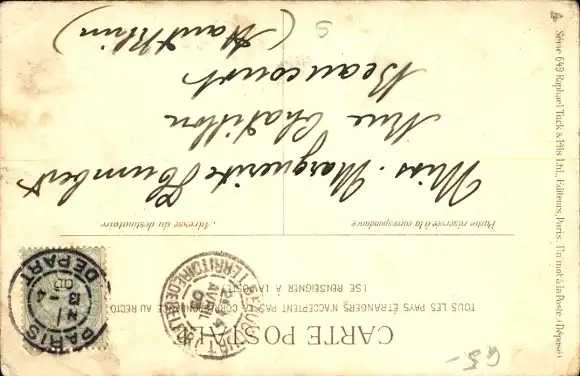 CARTE POSTALE
TOUS LES PAYS ÉTRANGERS N'ACCEPTENT PAS LA CORRESPONDANCE AU RECTO
(SE RENSEIGNER A LA POSTE)
Partie réservée à la correspondance
Adresse du destinataire
Miss. Marguerite Humbert
Rue Chatillon
Beaucourt
(Haut Rhin)
5
PARIS
DEPART
TERRITOIRE DE BELFORT
25
AVRIL
Série 649 Raphael Tuck & Fils Ltd., Editeurs, Paris. Un mot à la Poste. (Déposé)
G5-